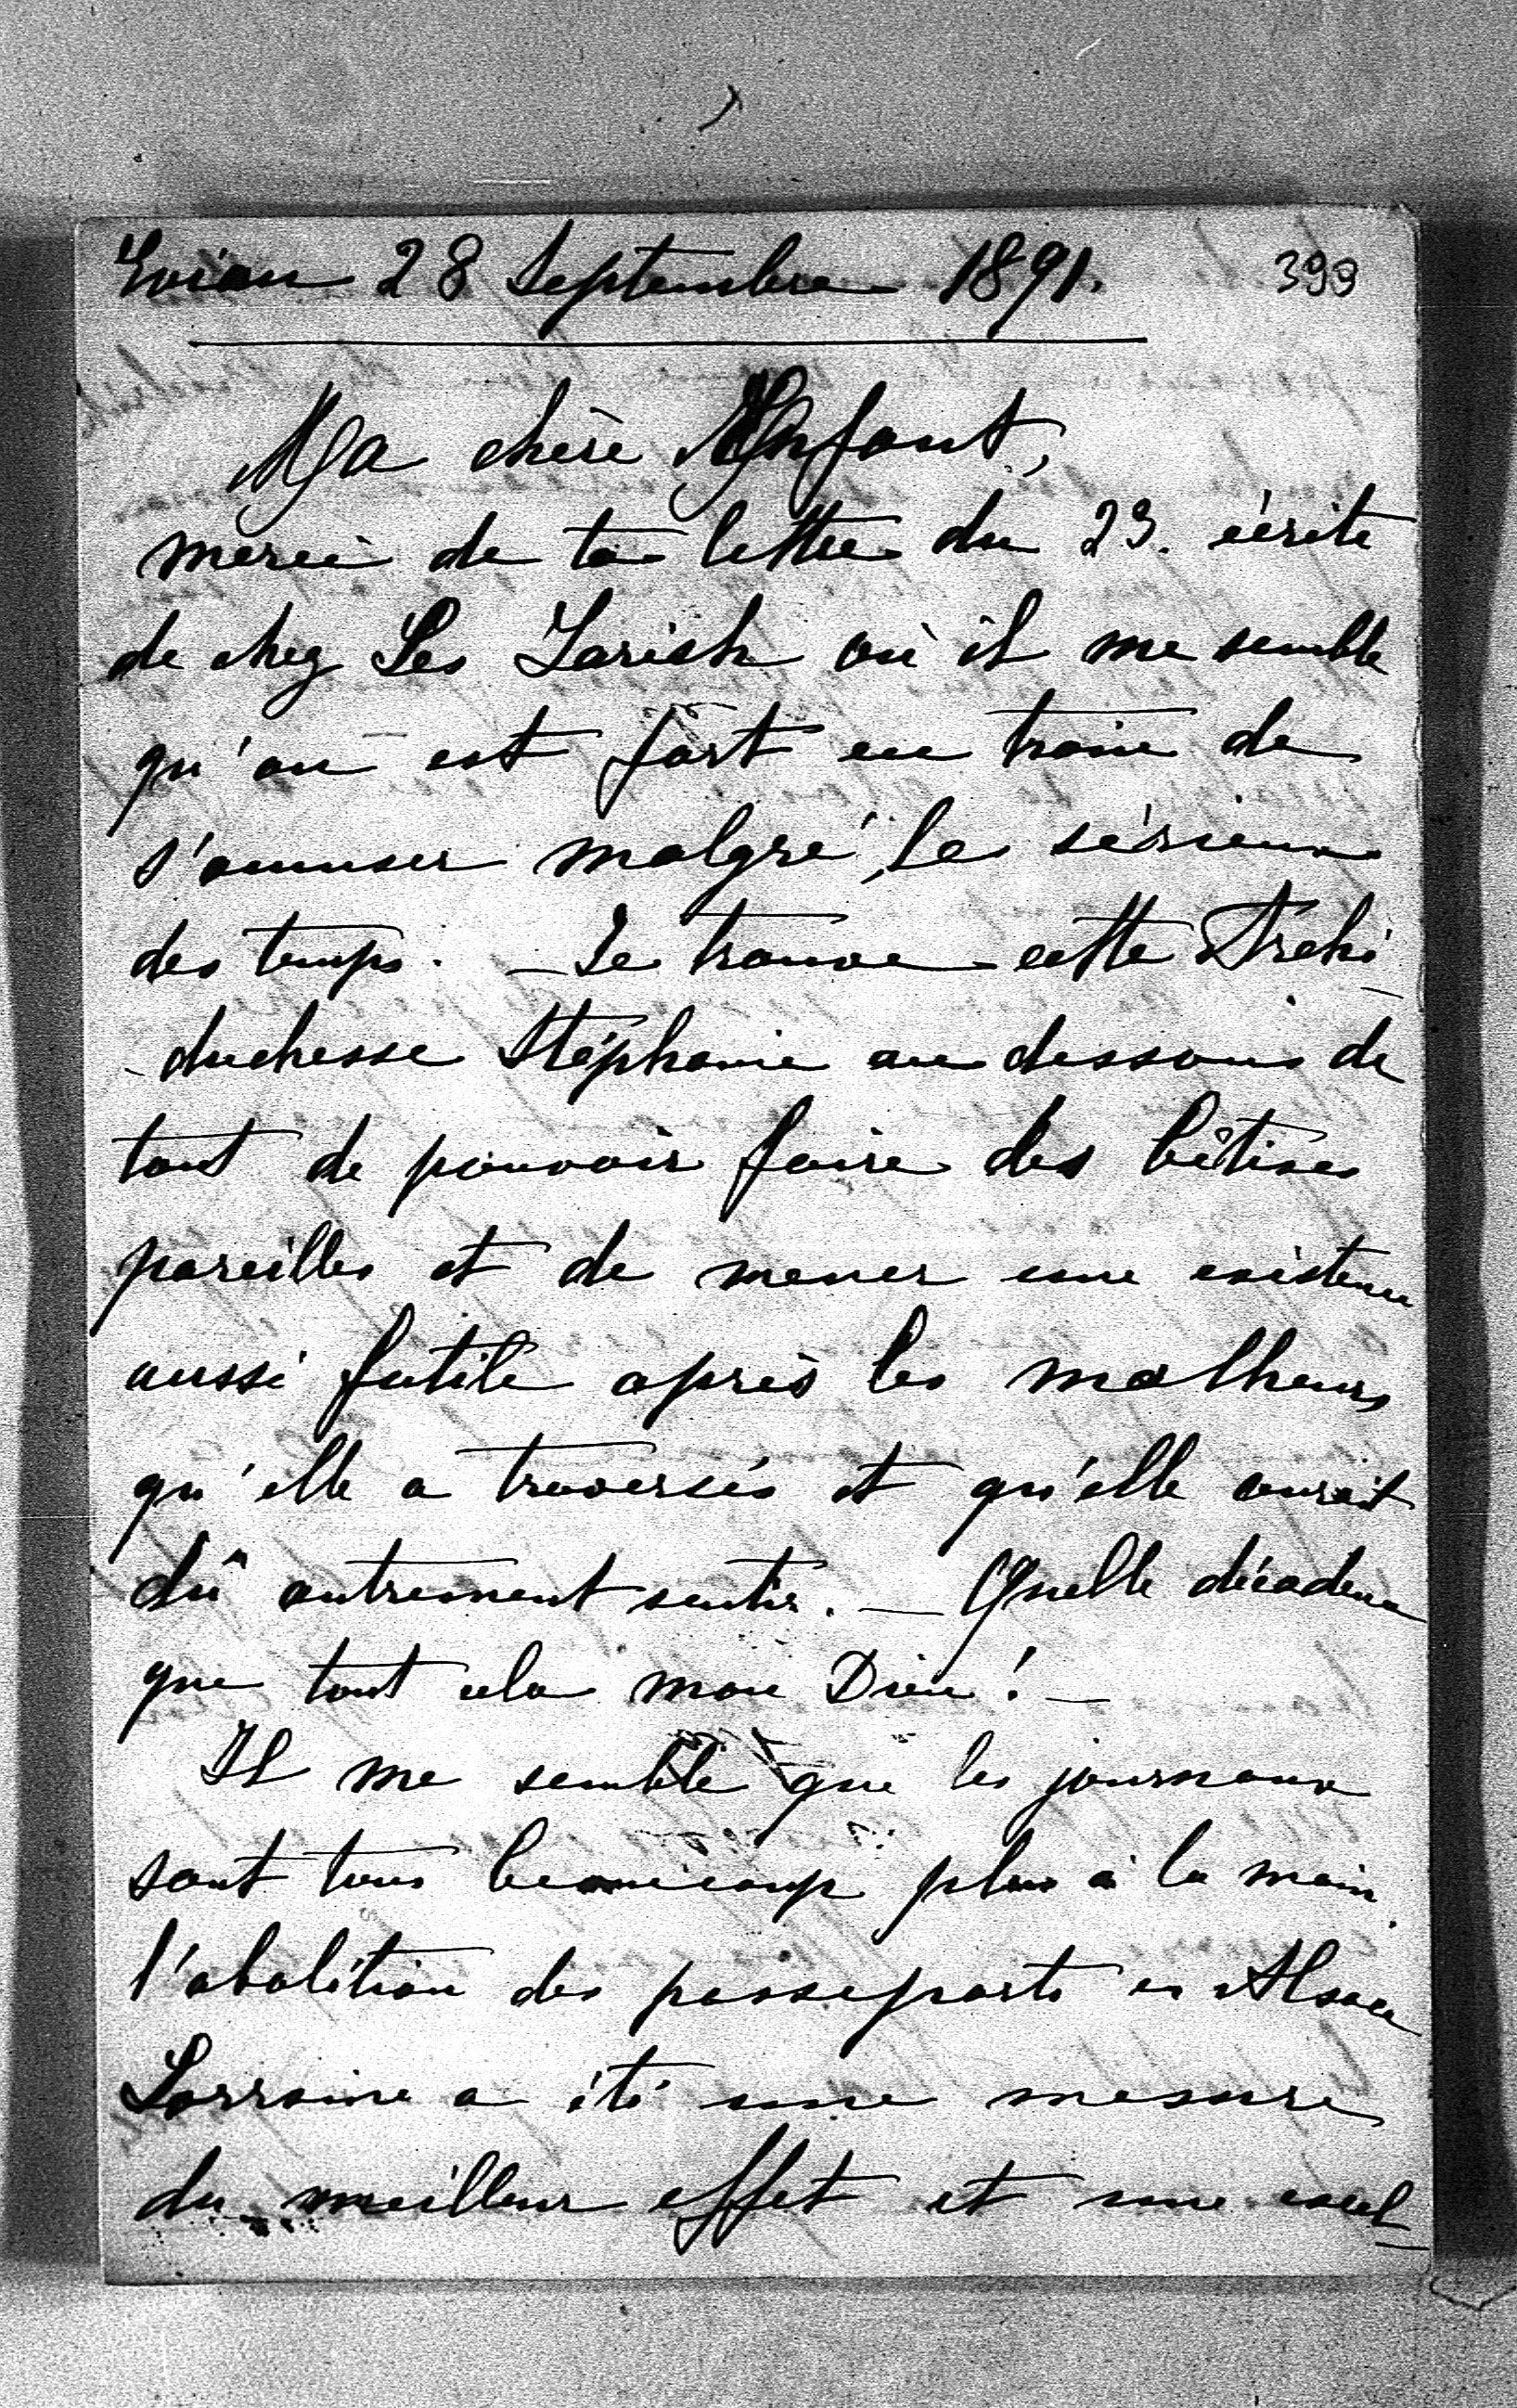 Evian 28 Septembre 1891. 399
Ma chère Enfant,
merci de ta lettre du 23. écrite
de chez Les Larish où il me semble
qu'on est fort en train de
s'amuser malgré le sérieux
des temps. — Je trouve cette Archi-
-duchesse Stéphanie au dessous de
tout de pouvoir faire des bêtises
pareilles et de mener une existence
aussi futile après les malheurs
qu'elle a traversés et qu'elle aurait
dû autrement sentir. — Quelle décadence
que tout cela mon Dieu! —
Il me semble que les journaux
sont tous beaucoup plus à la main.
l'abolition des passeports en Alsace
Lorraine a été une mesure
du meilleur effet et une excel-